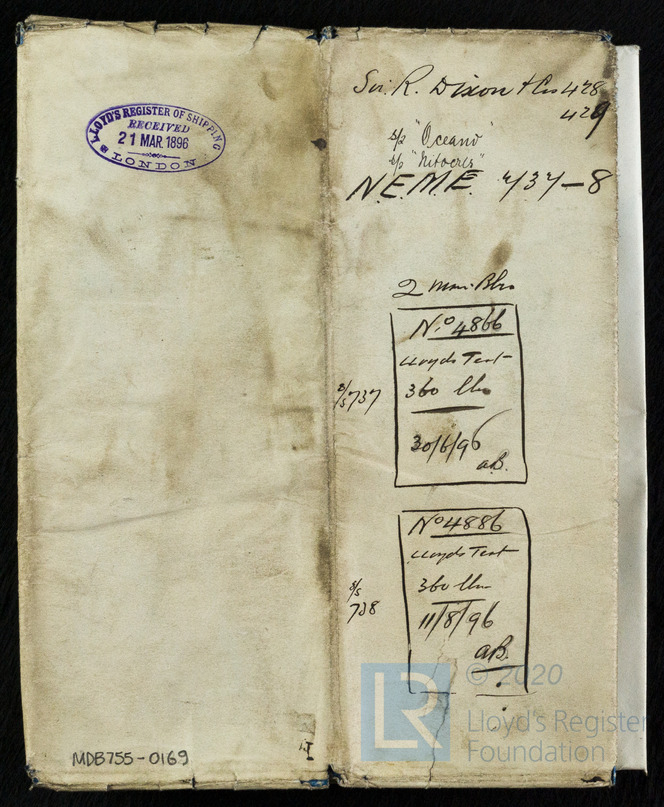 LLOYD'S REGISTER OF SHIPPING
RECEIVED
21 MAR. 1896
LONDON
MDB755-0169
Sir. R. Dixon & Co 428
429
S/S "Oceano"
S/S "Nitocris"
N.E.M.E. 737-8
2 Main Blrs
No 4866
Lloyds Test
360 lbs
30/6/96
a.B.
S/S 737
No 4886
Lloyds Test
360 lbs
11/8/96
a.B.
S/S
738
© 2020
LR
Lloyd's Register
Foundation